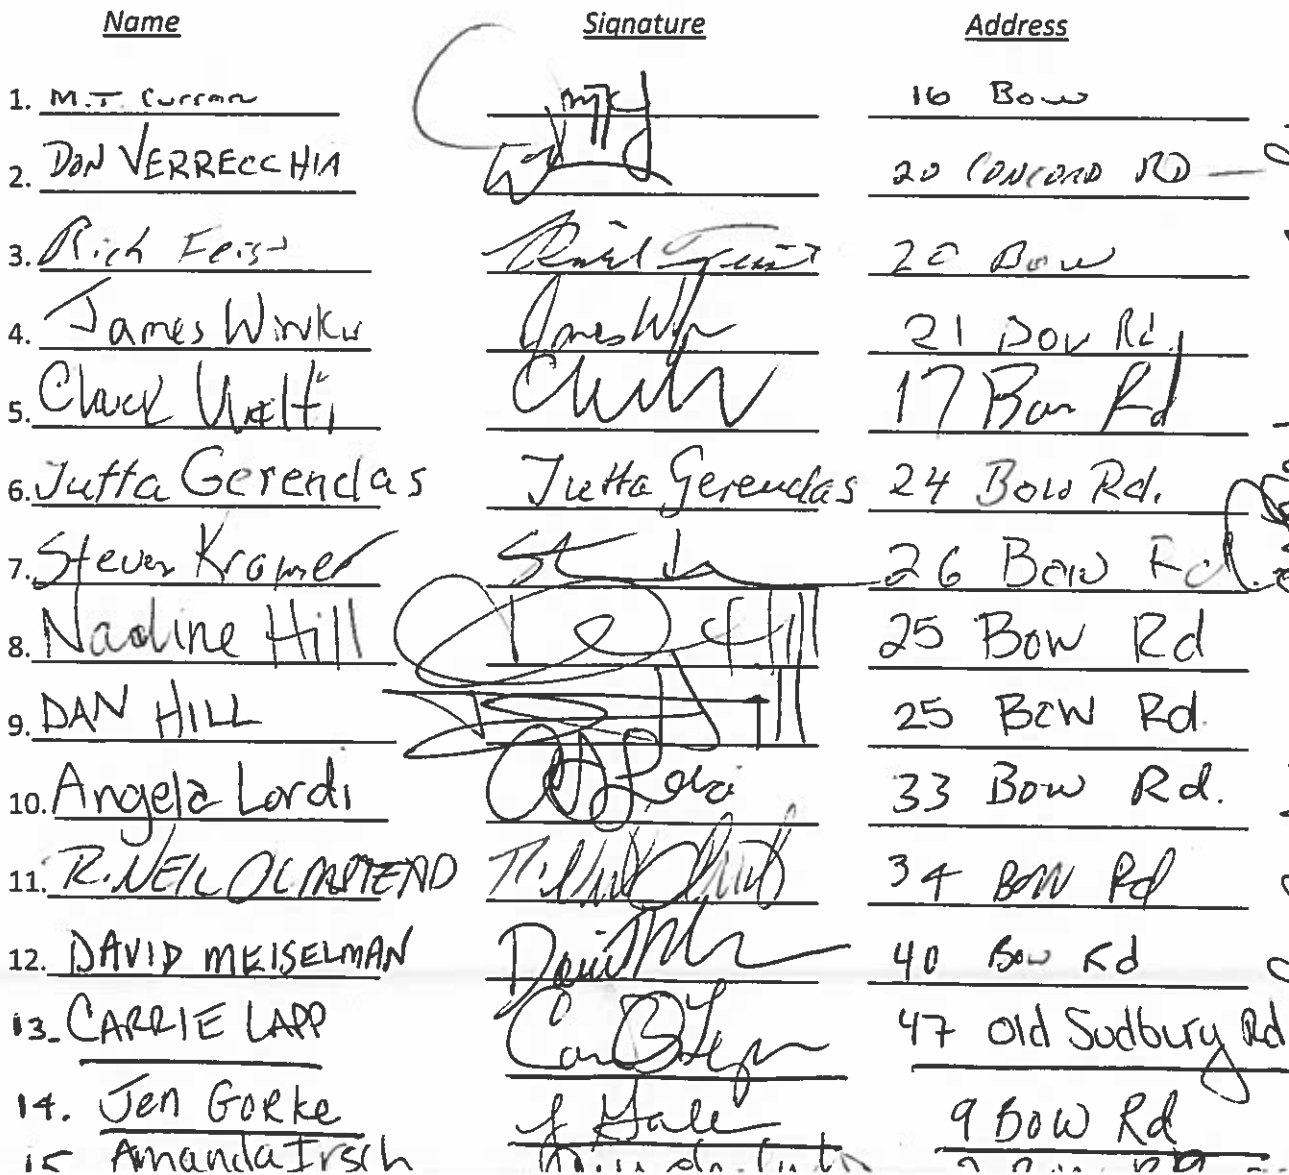 Name Signature Address
1. M.T Curran MTC 16 Bow
2. DON VERRECCHIA 20 CONCORD RD —
3. Rich Feist 20 Bow
4. James Winkler James 21 Bow Rd.
5. Chuck 17 Bow Rd
6. Jutta Gerendas Jutta Gerendas 24 Bow Rd.
7. Steven Kramer 26 Bow Rd
8. Nadine Hill Hill 25 Bow Rd
9. DAN HILL 25 BOW Rd.
10. Angela Lordi 33 Bow Rd.
11. R. NEIL OLMSTEAD 34 BOW Rd
12. DAVID MEISELMAN David 40 Bow Rd
13. CARRIE LAPP 47 Old Sudbury Rd
14. Jen GORKe 9 BOW Rd
15 Amanda Irsch